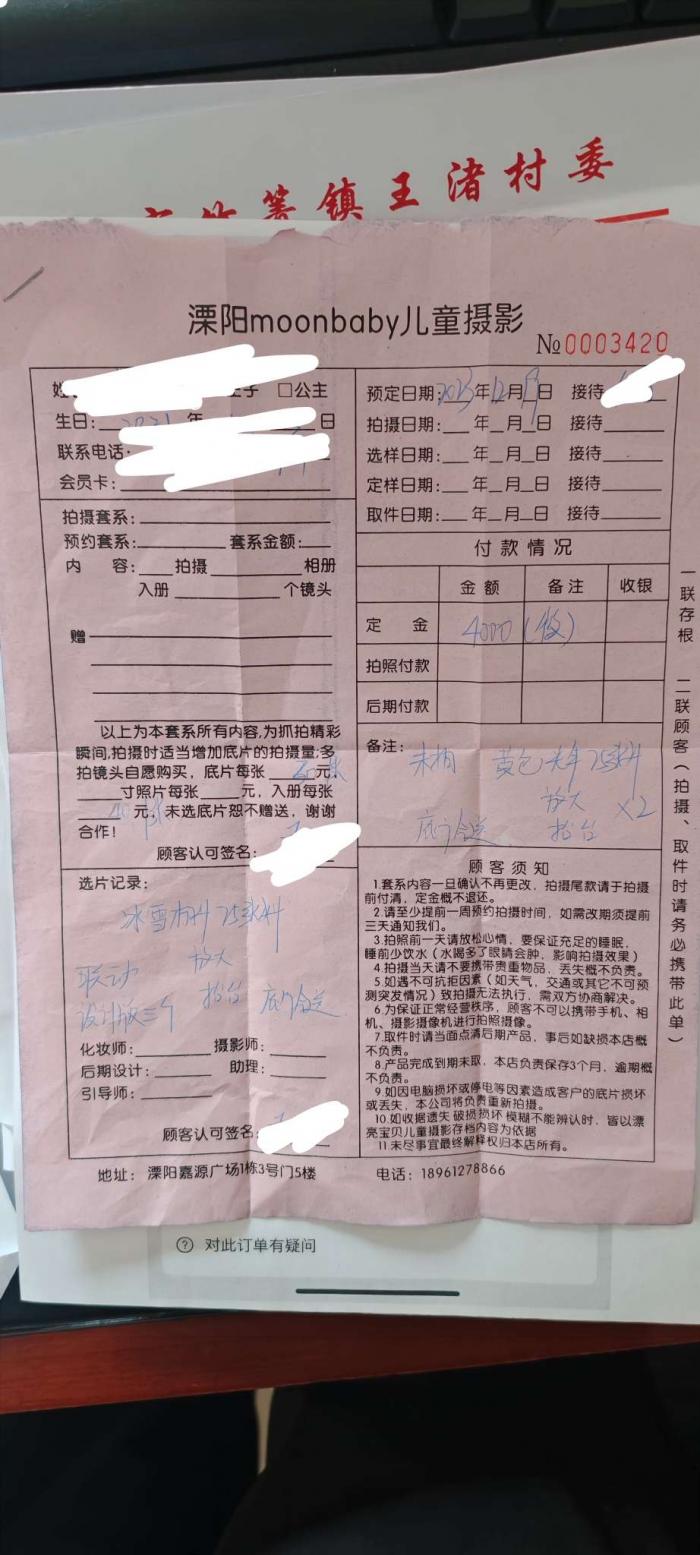 箬镇王渚村委
溧阳moonbaby儿童摄影
№0003420
□公主
生日: 2021年 日
联系电话:
会员卡:
预定日期: 2023年12月 日 接待
拍摄日期: 年 月 日 接待
选样日期: 年 月 日 接待
定样日期: 年 月 日 接待
取件日期: 年 月 日 接待
拍摄套系:
预约套系: 套系金额:
内 容: 拍摄 相册
入册 个镜头
赠
付款情况
金额 备注 收银
定 金 4000
拍照付款
后期付款
以上为本套系所有内容,为抓拍精彩
瞬间,拍摄时适当增加底片的拍摄量;多
拍镜头自愿购买,底片每张 元,
寸照片每张 元,入册每张
元,未选底片恕不赠送,谢谢
合作!
顾客认可签名:
备注:
放大 X2
底片全送
选片记录:
冰雪
放大
底片全送
化妆师: 摄影师:
后期设计: 助理:
引导师:
顾客认可签名:
顾客须知
1.套系内容一旦确认不再更改,拍摄尾款请于拍摄
前付清,定金概不退还。
2.请至少提前一周预约拍摄时间,如需改期须提前
三天通知我们。
3.拍照前一天请放松心情,要保证充足的睡眠,
睡前少饮水(水喝多了眼睛会肿,影响拍摄效果)
4.拍摄当天请不要携带贵重物品,丢失概不负责。
5.如遇不可抗拒因素(如天气,交通或其它不可预
测突发情况)致拍摄无法执行,需双方协商解决。
6.为保证正常经营秩序,顾客不可以携带手机、相
机、摄影摄像机进行拍照摄像。
7.取件时请当面点清后期产品,事后如缺损本店概
不负责。
8产品完成到期未取,本店负责保存3个月,逾期概
不负责。
9.如因电脑损坏或停电等因素造成客户的底片损坏
或丢失,本公司将负责重新拍摄。
10.如收据遗失 破损损坏 模糊不能辨认时,皆以漂
亮宝贝儿童摄影存档内容为依据
11未尽事宜最终解释权归本店所有。
一联存根 二联顾客(拍摄、取件时请务必携带此单)
地址: 溧阳嘉源广场1栋3号门5楼 电话: 18961278866
? 对此订单有疑问